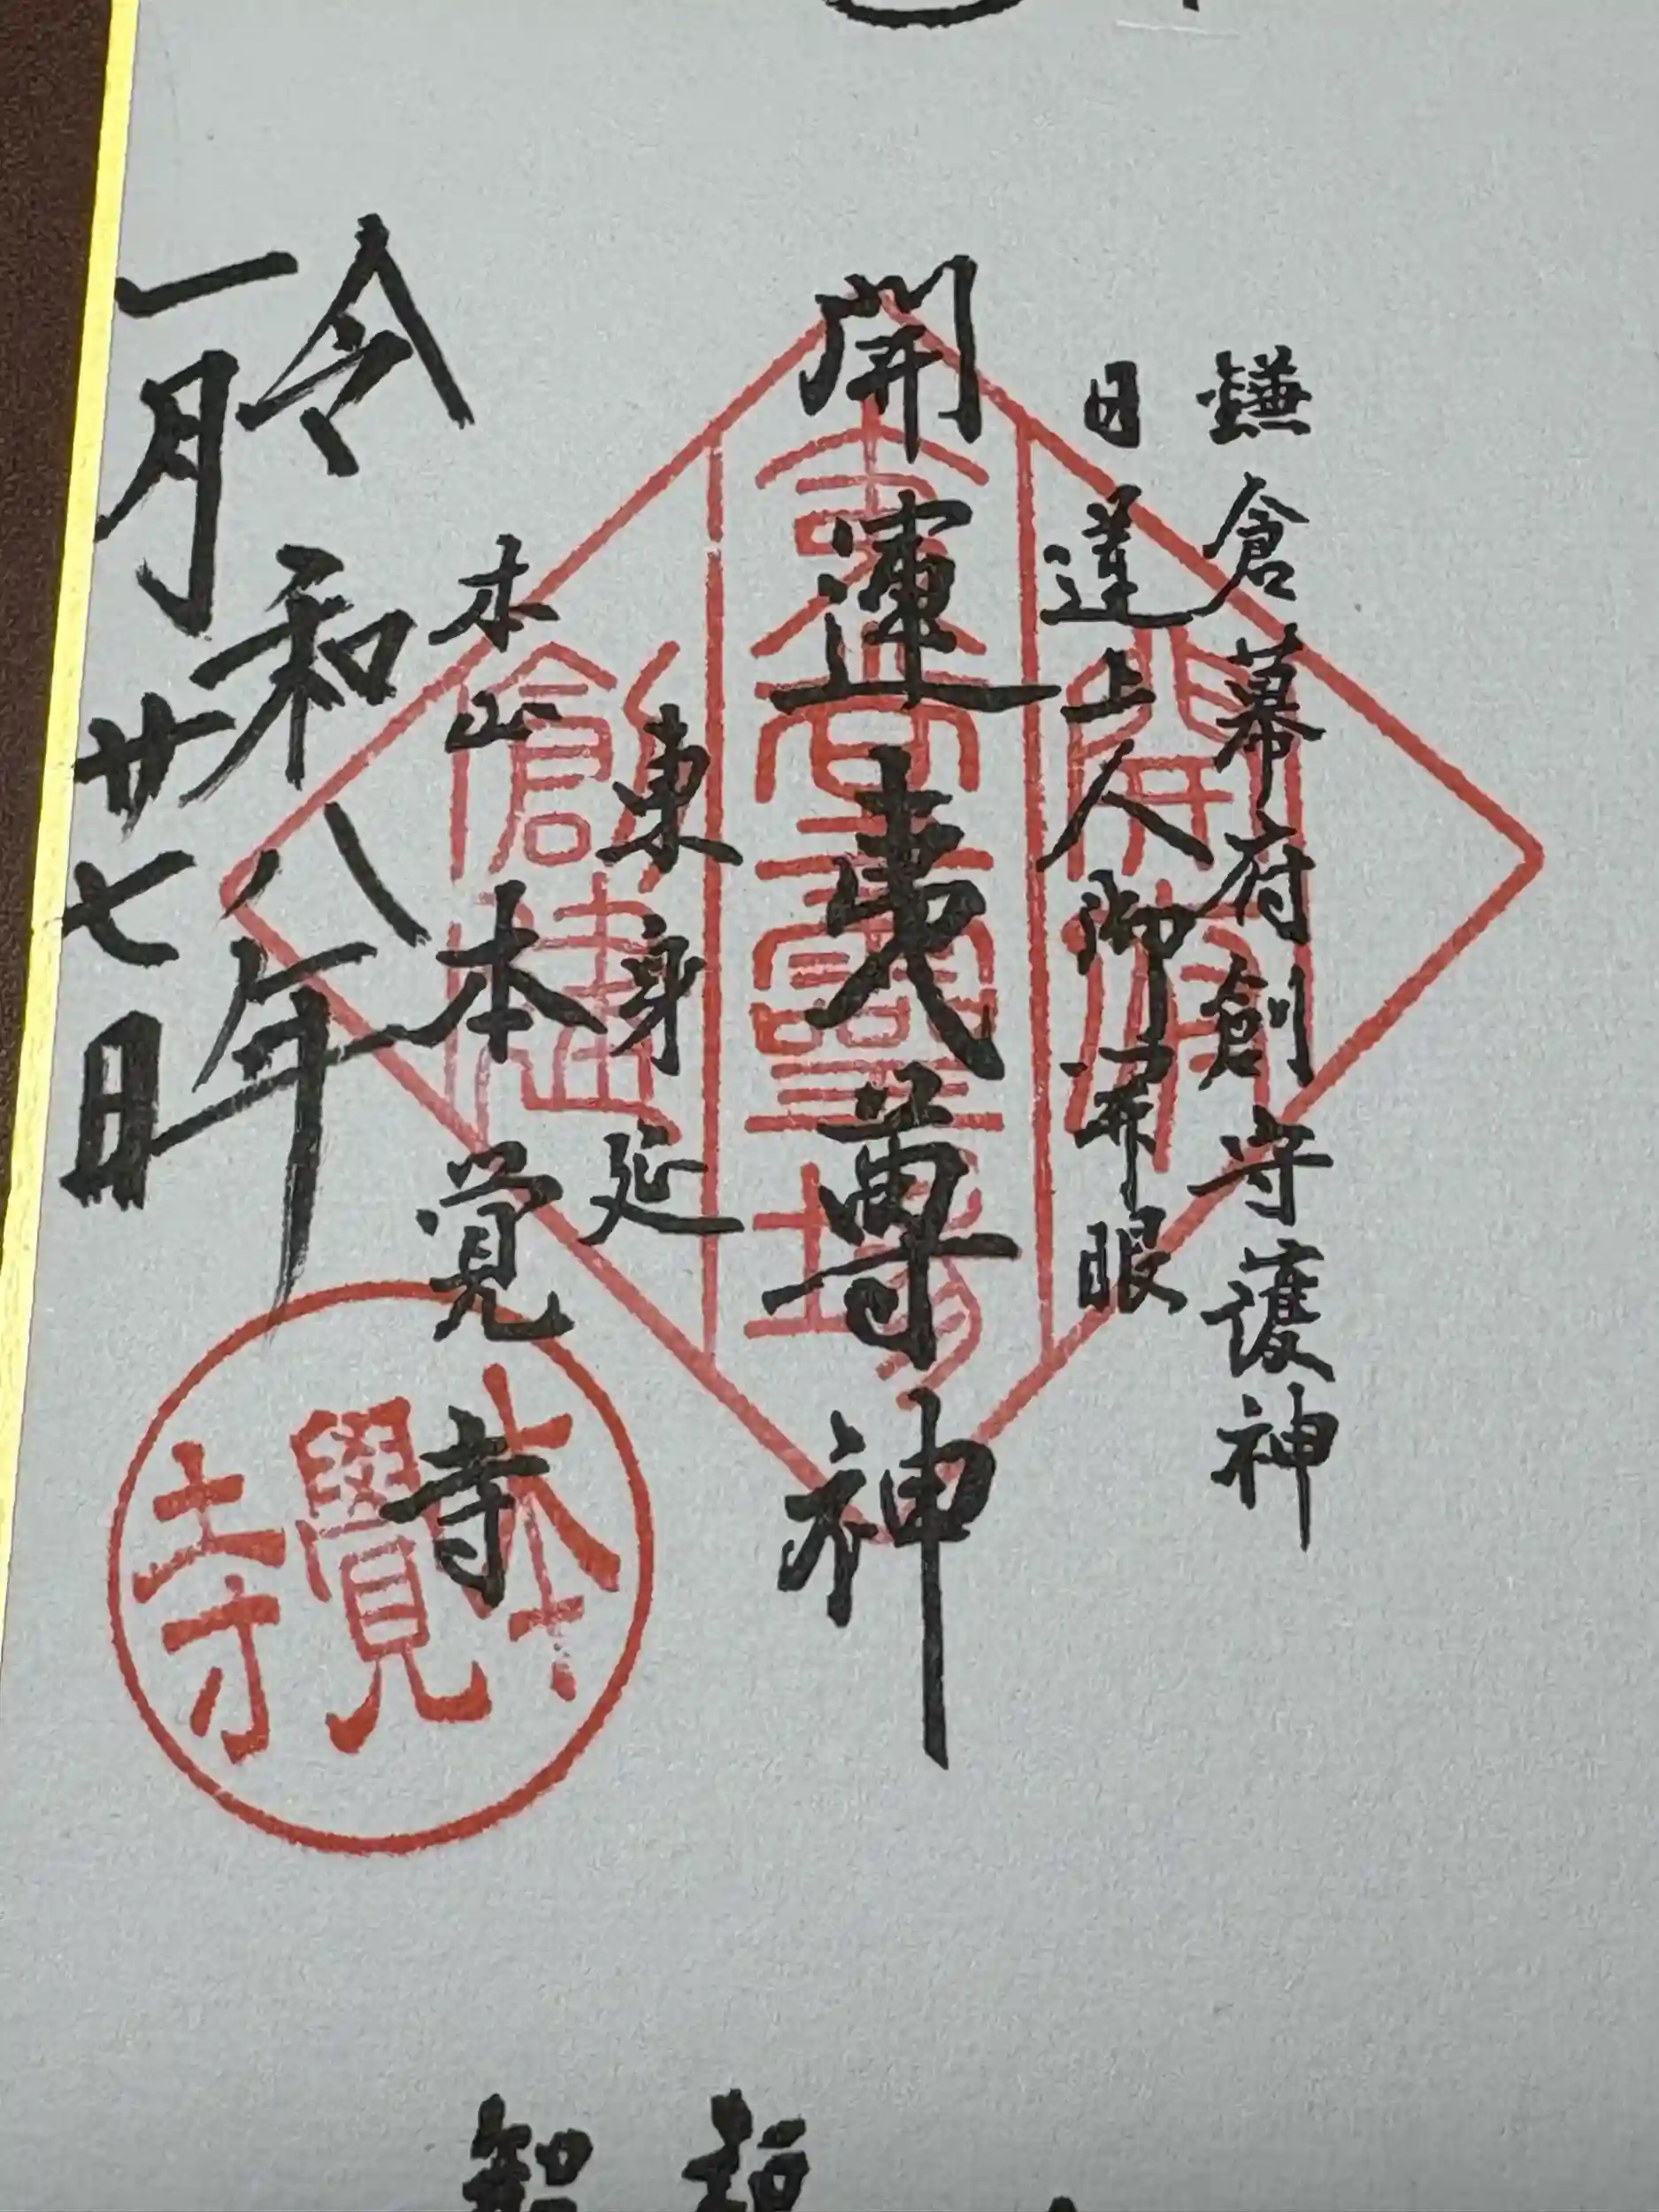 鎌倉幕府創守護神
日蓮上人御開眼
開運夷尊神
東身延
本山 本覚寺
令和八年
一月廿七日
本覺寺